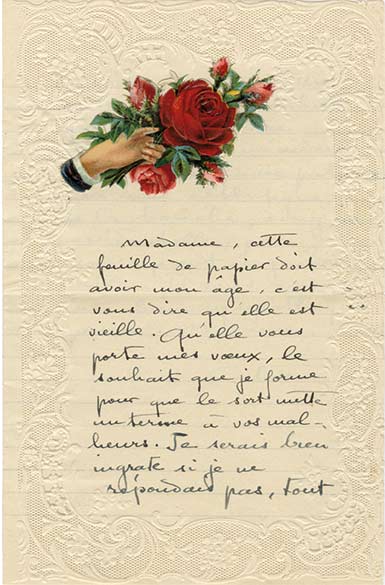 Madame, cette
feuille de papier doit
avoir mon âge, c'est
vous dire qu'elle est
vieille. Qu'elle vous
porte mes vœux, le
souhait que je forme
pour que le sort mette
un terme à vos mal-
heurs. Je serais bien
ingrate si je ne
répondais pas, tout